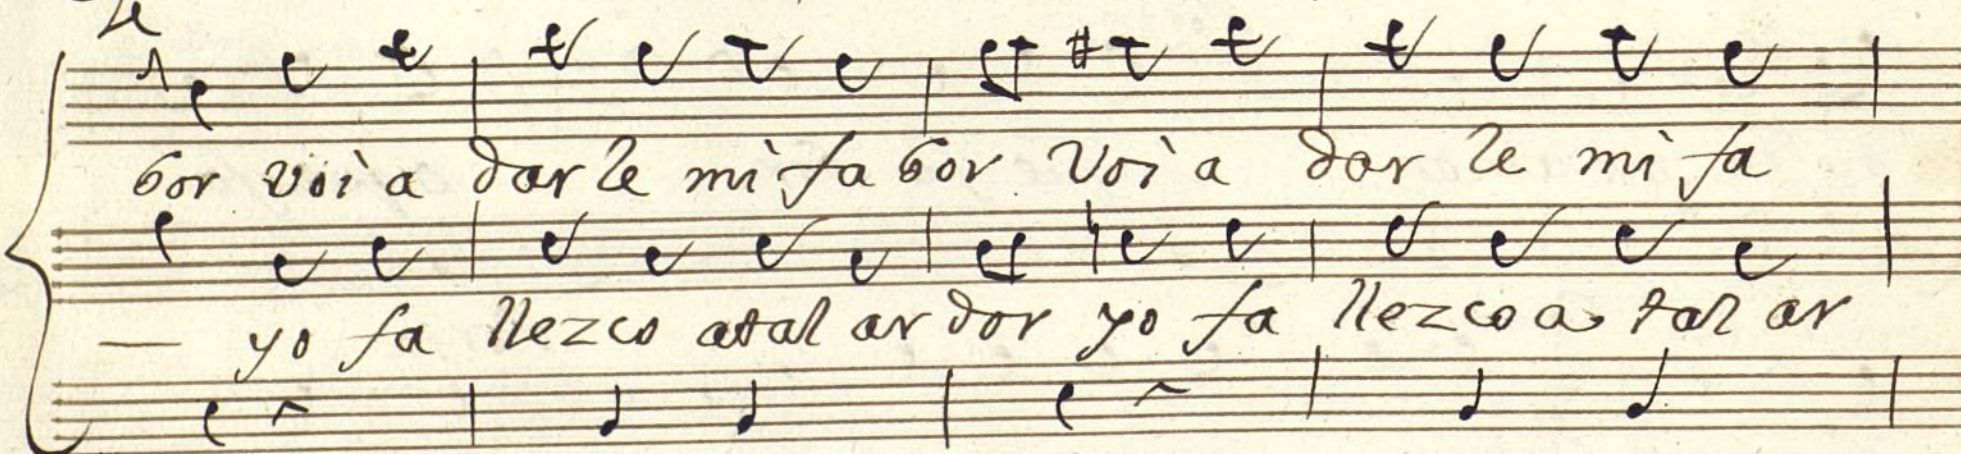 bor voi a dar le mi fa bor voi a dar le mi fa
yo fa llezco atal ar dor yo fa llezco a tal ar